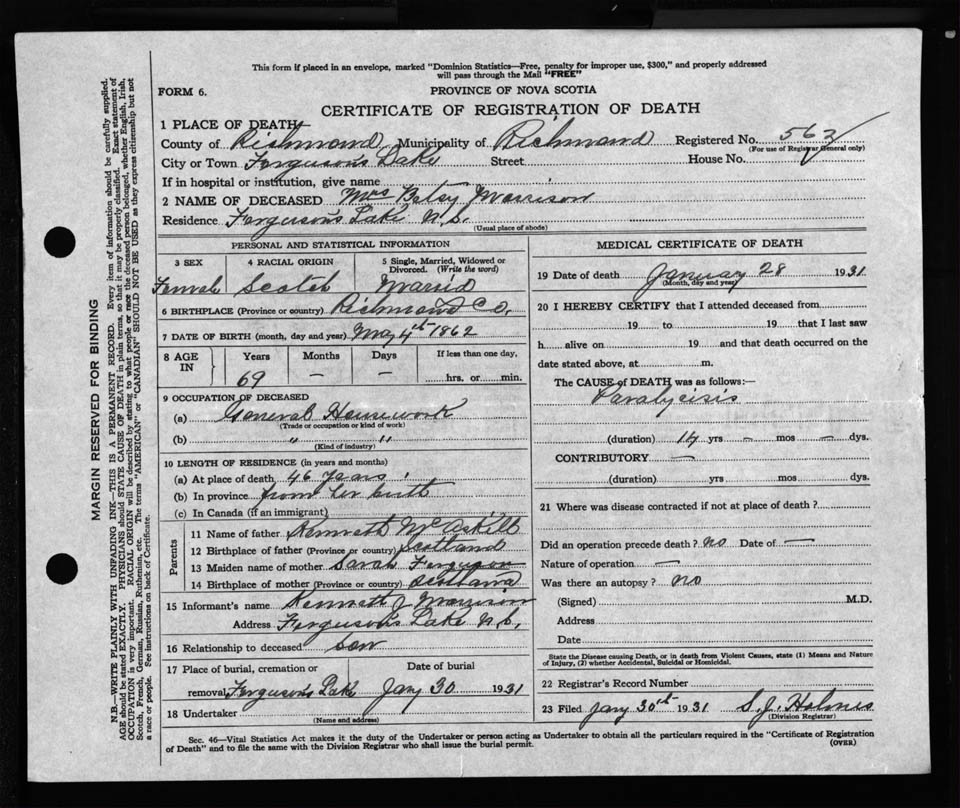 This form if placed in an envelope, marked "Dominion Statistics—Free, penalty for improper use, $300," and properly addressed
will pass through the Mail "FREE"
FORM 6.
PROVINCE OF NOVA SCOTIA
CERTIFICATE OF REGISTRATION OF DEATH
1 PLACE OF DEATH—
County of Richmond, Municipality of Richmond Registered No. 562
(For use of Registrar General only)
City or Town Ferguson's Lake Street House No.
If in hospital or institution, give name
2 NAME OF DECEASED Mrs Betsy Morrison
Residence Ferguson's Lake, N.S.
(Usual place of abode)
PERSONAL AND STATISTICAL INFORMATION
3 SEX 4 RACIAL ORIGIN 5 Single, Married, Widowed or
Divorced. (Write the word)
Femal Scotch Marrid
6 BIRTHPLACE (Province or country) Richmond Co.
7 DATE OF BIRTH (month, day and year) May 4th 1862
8 AGE IN Years Months Days If less than one day,
69 — — hrs. or min.
9 OCCUPATION OF DECEASED
(a) General Housework
(Trade or occupation or kind of work)
(b) " "
(Kind of industry)
10 LENGTH OF RESIDENCE (in years and months)
(a) At place of death 46 years
(b) In province from her birth
(c) In Canada (if an immigrant)
Parents
11 Name of father Kenneth McAskill
12 Birthplace of father (Province or country) Scotland
13 Maiden name of mother Sarah Ferguson
14 Birthplace of mother (Province or country) Scotland
15 Informant's name Kenneth J Morrison
Address Ferguson's Lake N.S.
16 Relationship to deceased son
17 Place of burial, cremation or Date of burial
removal, Ferguson's Lake Jany 30 1931
18 Undertaker
(Name and address)
MEDICAL CERTIFICATE OF DEATH
19 Date of death January 28 1931
(Month, day and year)
20 I HEREBY CERTIFY that I attended deceased from
19 to 19 that I last saw
h alive on 19 and that death occurred on the
date stated above, at m.
The CAUSE of DEATH was as follows:—
Paralycisis
(duration) 14 yrs — mos — dys.
CONTRIBUTORY —
(duration) yrs. mos. dys.
21 Where was disease contracted if not at place of death?
Did an operation precede death? no Date of —
Nature of operation —
Was there an autopsy? no
(Signed) M.D.
Address
Date
State the Disease causing Death, or in death from Violent Causes, state (1) Means and Nature
of Injury, (2) whether Accidental, Suicidal or Homicidal.
22 Registrar's Record Number
23 Filed Jany 30th 1931 S. J. Holmes
(Division Registrar)
Sec. 46—Vital Statistics Act makes it the duty of the Undertaker or person acting as Undertaker to obtain all the particulars required in the "Certificate of Registration
of Death" and to file the same with the Division Registrar who shall issue the burial permit.
(OVER)
MARGIN RESERVED FOR BINDING
N.B.—WRITE PLAINLY WITH UNFADING INK—THIS IS A PERMANENT RECORD. Every item of information should be carefully supplied.
AGE should be stated EXACTLY. PHYSICIANS should STATE CAUSE OF DEATH in plain terms, so that it may be properly classified. Exact statement of
OCCUPATION is very important. RACIAL ORIGIN will be described by stating to what people or race the deceased person belonged, whether English, Irish,
Scotch, French, German, Russian, Ruthenian, etc. The terms "AMERICAN" or "CANADIAN" SHOULD NOT BE USED as they express citizenship but not
a race or people. See instructions on back of Certificate.